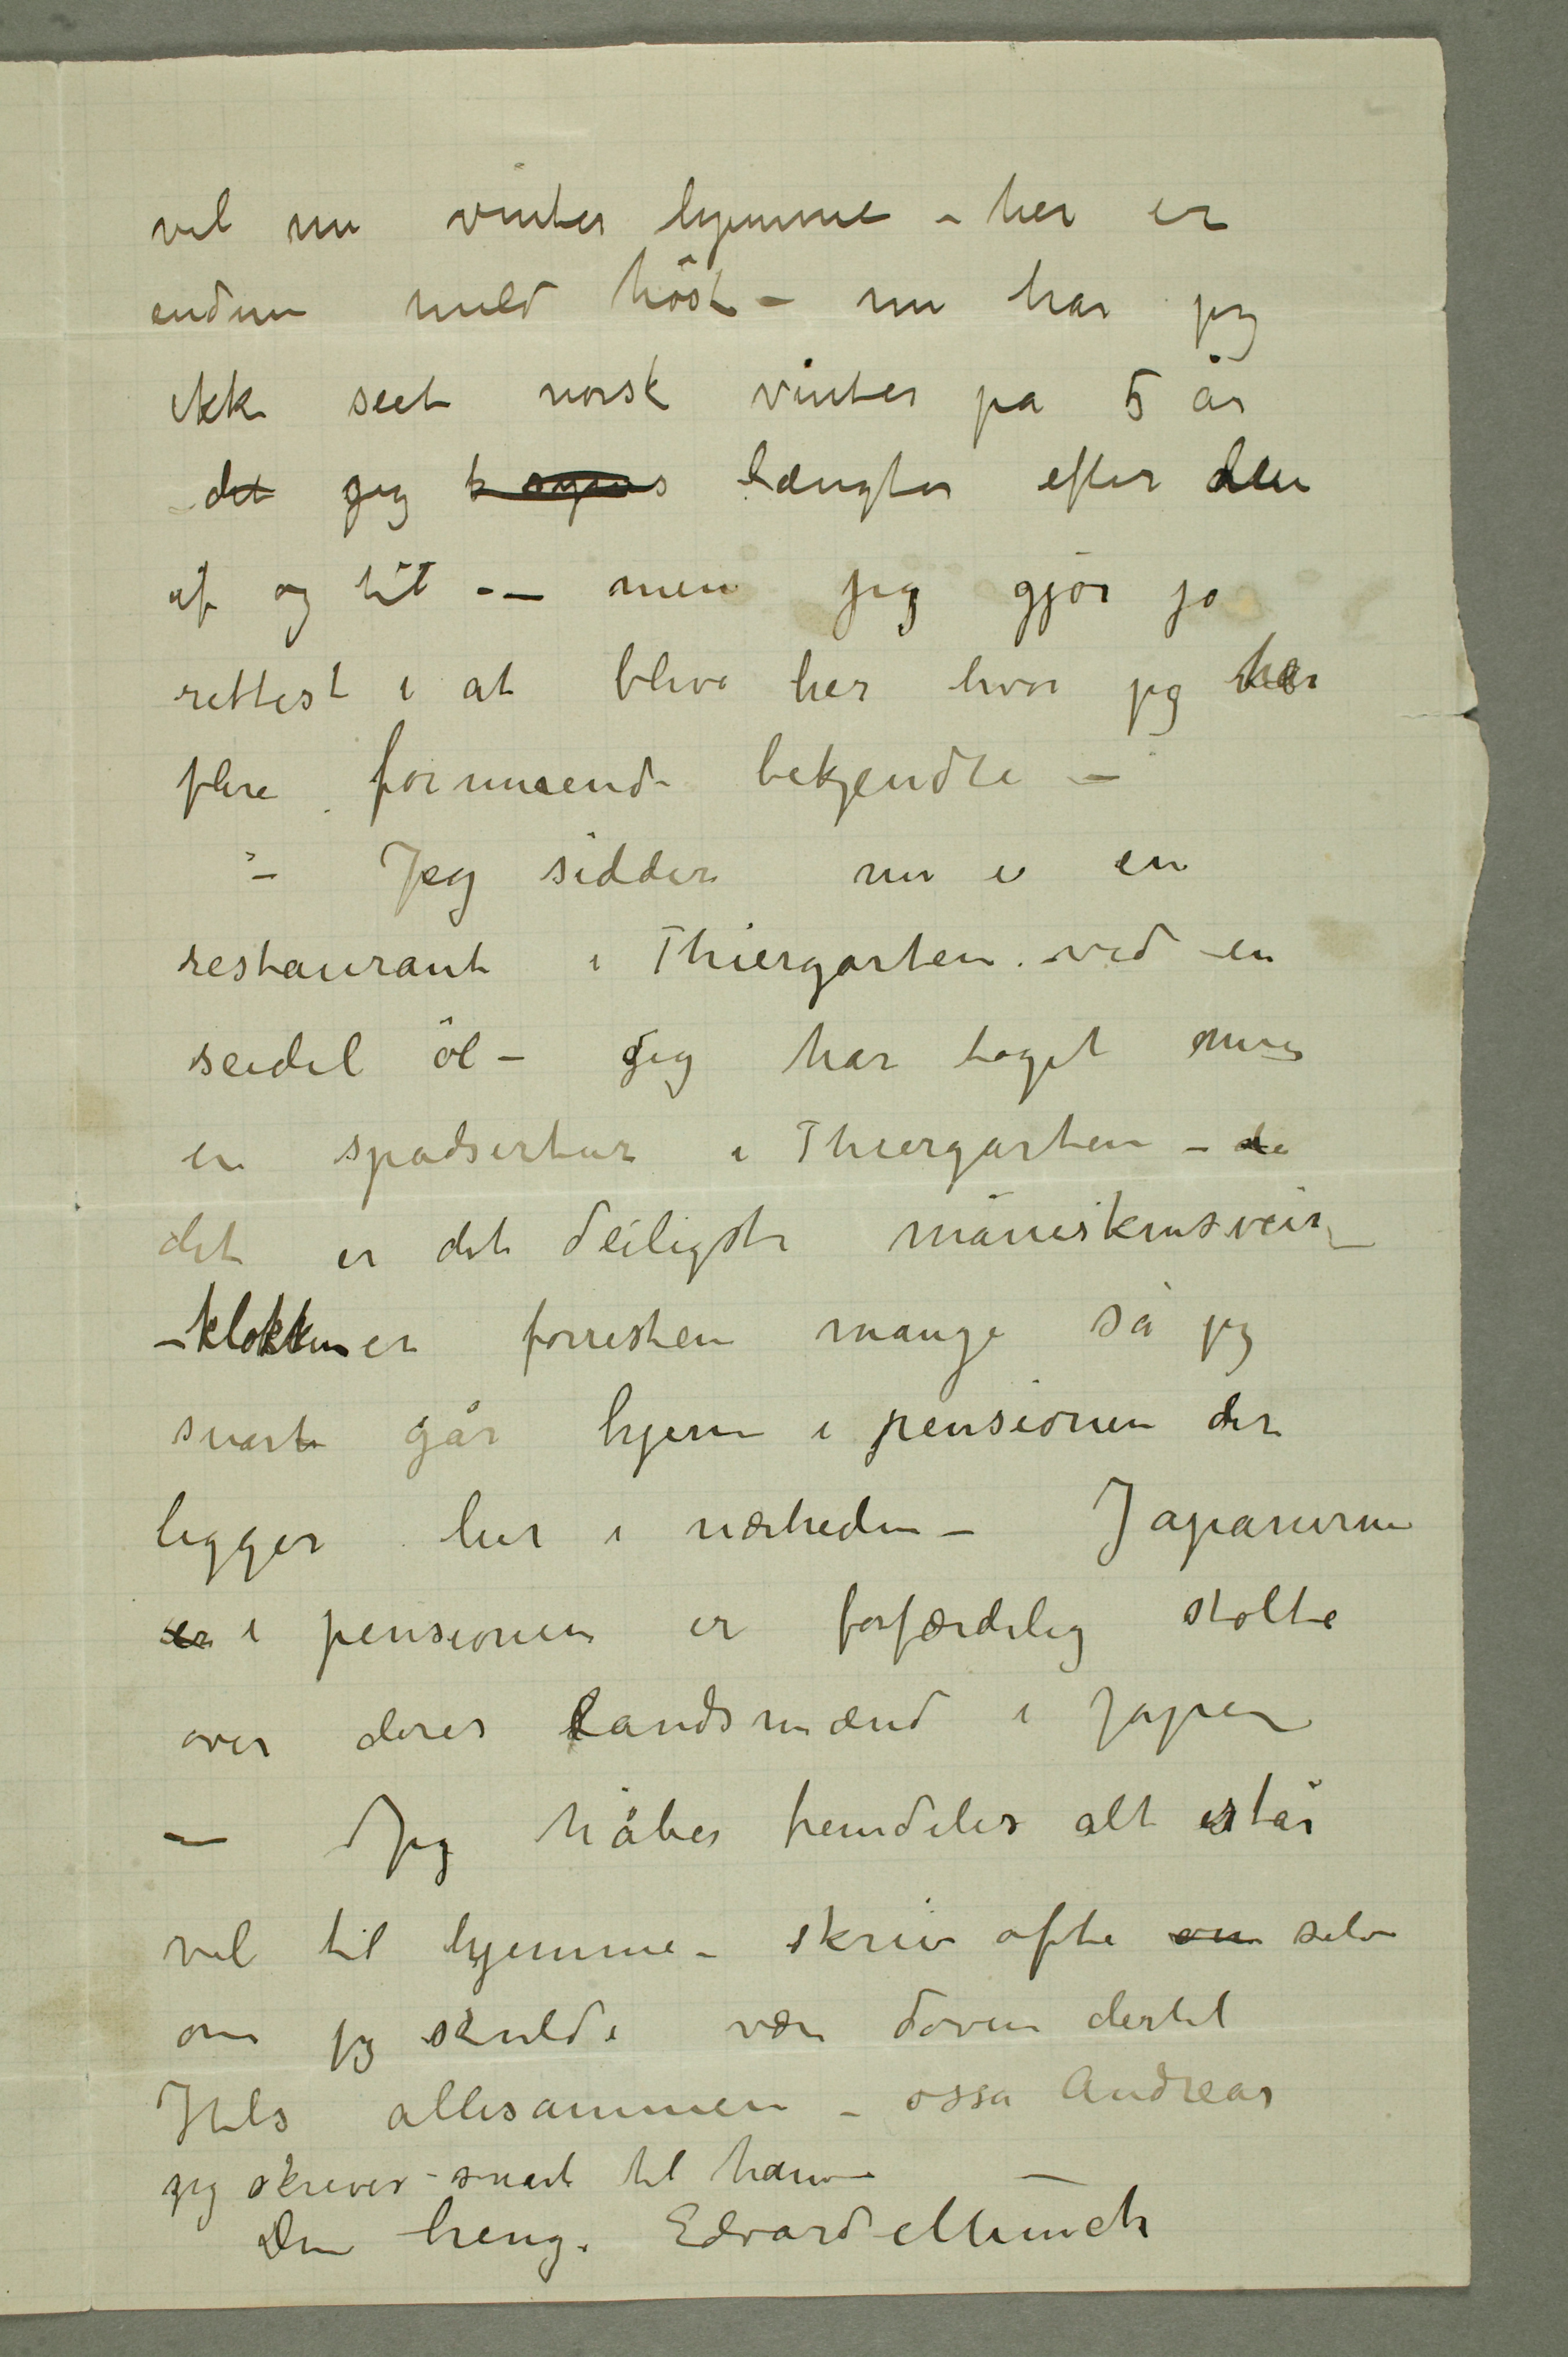 vel nu vinter hjemme – her er
endnu mild höst – nu har jeg
ikke seet norsk vinter på 5 år
det jeg længter efter den
af og til –– men jeg gjör jo
rettest i at blive her hvor jeg har
flere formuende bekjendte –
– Jeg sidder nu i en
restaurant i Thiergarten ved en
seidel öl – Jeg har taget mig
en spadsertur i Thiergarten – de
det er det deiligste måneskinsveir
– klokken er forresten mange så jeg
snart går hjem i pensionen der
ligger her i nærheden – Japanerne
er i pensionen er forfærdelig stolte
over deres landsmænd i Japan
– Jeg håber fremdeles alt står
vel til hjemme – skriv ofte om selv
om jeg skulde være doven dertil
Hils allesammen – osså Andreas
jeg skriver snart til ham –
Din heng. Edvard Munch